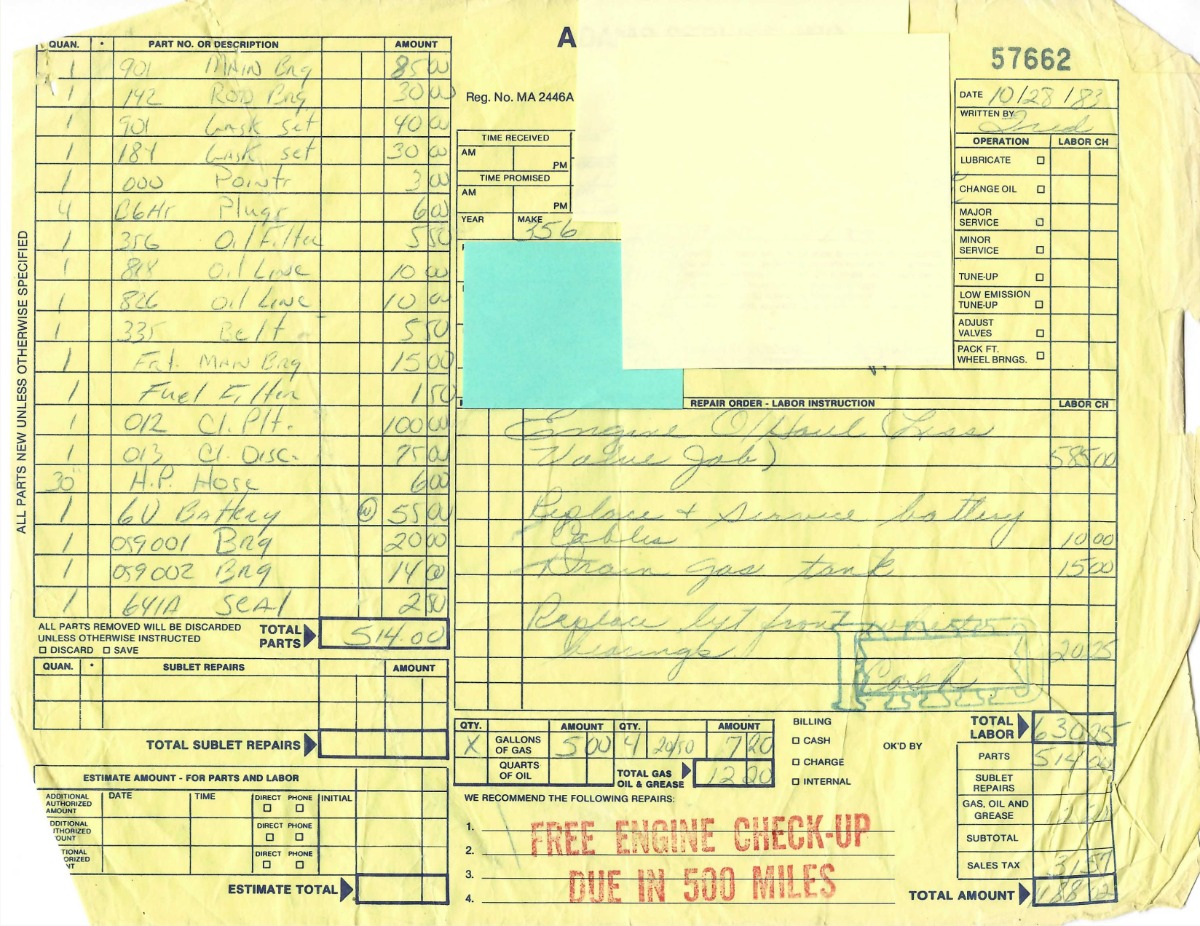 A
57662
QUAN. * PART NO. OR DESCRIPTION AMOUNT
1 901 MAIN Brg 85 00
1 142 ROD Brg 30 00
1 901 Gask set 40 00
1 184 Gask set 30 00
1 000 Points 3 00
4 C6Hr Plugs 6 00
1 356 Oil Filter 5 50
1 818 Oil Line 10 00
1 826 Oil Line 10 00
1 335 Belt 5 50
1 Frt. MAIN Brg 15 00
1 Fuel Filter 1 50
1 012 Cl. Plt. 100 00
1 013 Cl. Disc. 75 00
30 H.P. Hose 6 00
1 6V Battery W 55 00
1 059001 Brg 20 00
1 059002 Brg 14 00
1 641A SEAl 2 50
ALL PARTS NEW UNLESS OTHERWISE SPECIFIED
ALL PARTS REMOVED WILL BE DISCARDED
UNLESS OTHERWISE INSTRUCTED
DISCARD SAVE
TOTAL PARTS 514.00
QUAN. * SUBLET REPAIRS AMOUNT
TOTAL SUBLET REPAIRS
ESTIMATE AMOUNT - FOR PARTS AND LABOR
ADDITIONAL AUTHORIZED AMOUNT DATE TIME DIRECT PHONE INITIAL
DDITIONAL THORIZED OUNT DIRECT PHONE
TIONAL ORIZED NT DIRECT PHONE
ESTIMATE TOTAL
Reg. No. MA 2446A
TIME RECEIVED
AM PM
TIME PROMISED
AM PM
YEAR MAKE
356
DATE 10/28/83
WRITTEN BY
OPERATION LABOR CH
LUBRICATE
CHANGE OIL
MAJOR SERVICE
MINOR SERVICE
TUNE-UP
LOW EMISSION TUNE-UP
ADJUST VALVES
PACK FT. WHEEL BRNGS.
REPAIR ORDER - LABOR INSTRUCTION LABOR CH
Engine O/Haul Less
Valve Job) 585 00
Replace + service battery
Cables 10 00
Drain gas tank 15 00
Replace left front
bearings. 20 25
Cash
QTY. AMOUNT QTY. AMOUNT
X GALLONS OF GAS 5 00 4 20/50 7 20
QUARTS OF OIL
TOTAL GAS OIL & GREASE 12 20
BILLING
CASH
CHARGE
INTERNAL
OK'D BY
TOTAL LABOR 630 25
PARTS 514 00
SUBLET REPAIRS
GAS, OIL AND GREASE
SUBTOTAL
SALES TAX
TOTAL AMOUNT
WE RECOMMEND THE FOLLOWING REPAIRS:
1.
2.
3.
4.
FREE ENGINE CHECK-UP
DUE IN 500 MILES